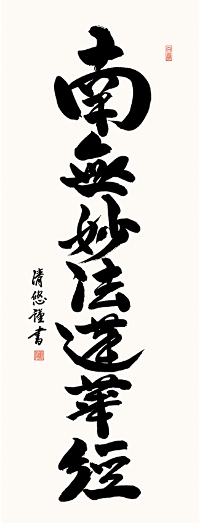 南無妙法蓮華經
清悠謹書